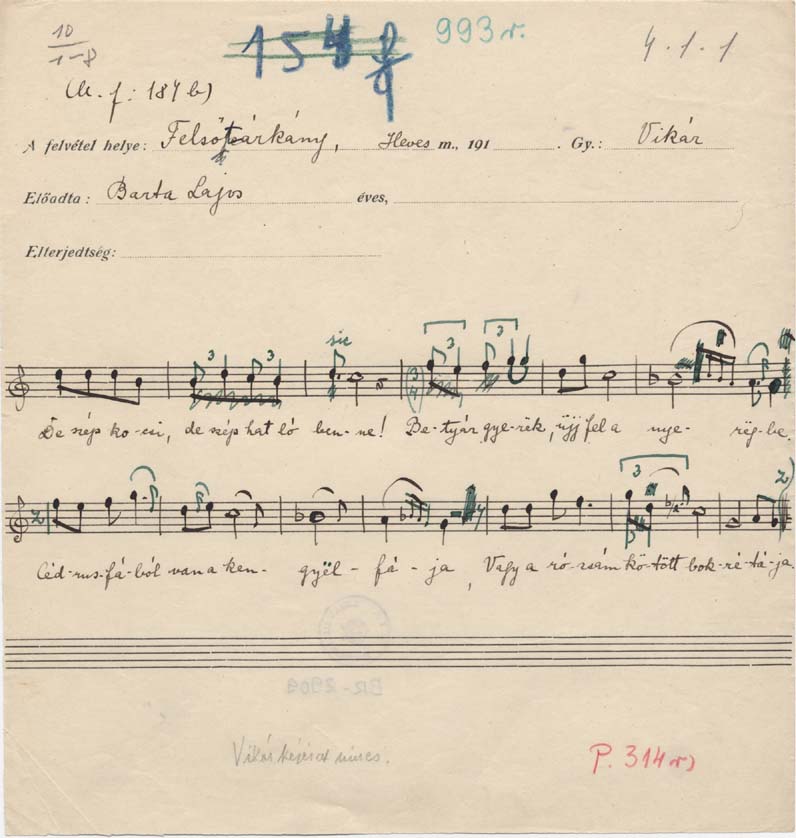 10
1-8
993r.
4.1.1
(M. f: 187 b)
A felvétel helye: Felsőtárkány, Heves m., 191 . Gy.: Vikár
Előadta: Barta Lajos éves,
Elterjedtség:
3 3 sic 3 3
De szép ko-csi, de szép hat ló ben-ne! Be-tyár gye-rëk, üjj fel a nye- rëg-be.
3 2)
Céd-rus-fá-ból van a ken- gyël- fá- ja, Vagy a ró-zsám kö-tött bok-ré-tá-ja.
BR-2909
nincs.
P. 314 r)